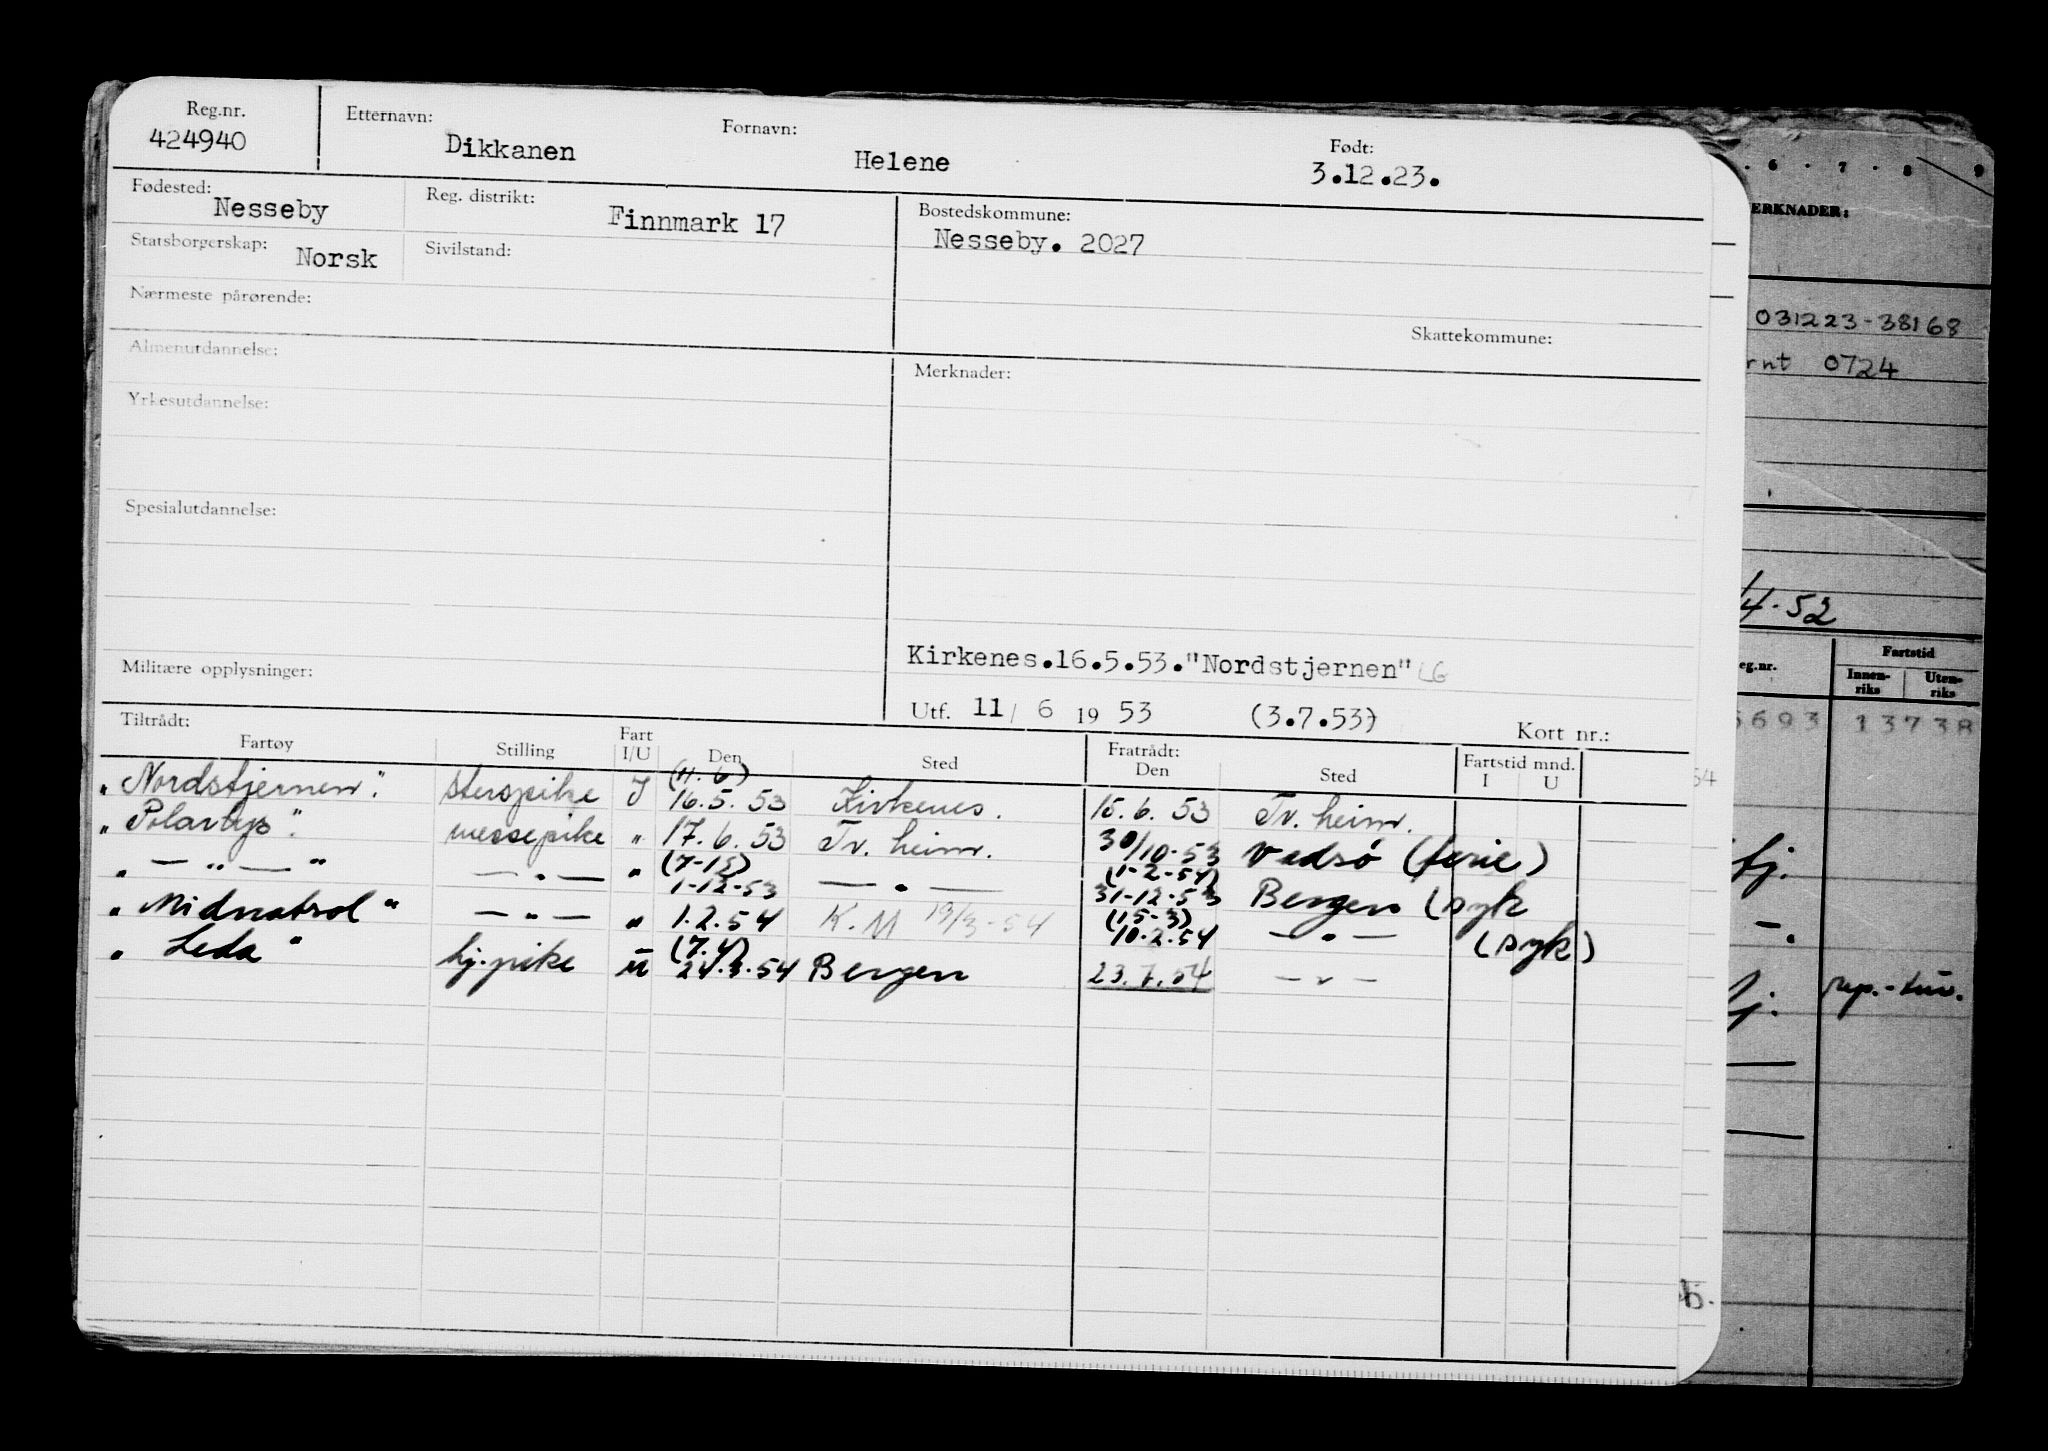 Reg.nr. Etternavn: Fornavn: Født:
424940 Dikkanen Helene 3.12.23.
Fødested: Reg. distrikt: Bostedskommune:
Nesseby Finnmark 17 Nesseby. 2027
Statsborgerskap: Norsk Sivilstand:
Nærmeste pårørende:
Skattekommune:
Almenutdannelse: Merknader:
Yrkesutdannelse:
Spesialutdannelse:
Kirkenes.16.5.53."Nordstjernen" LG
Militære opplysninger:
Utf. 11 / 6 19 53 (3.7.53) Kort nr.:
Tiltrådt: Fratrådt:
Fartøy Stilling Fart I/U Den Sted Den Sted Fartstid mnd. I U
(11.6)
"Nordstjernen". I 16.5.53 Kirkenes. 15.6.53 Tr. heim.
"Polarlys". messepike " 17.6.53 Tr. heim. 30/10-53 Vadsø (ferie)
(7-12) (1-2-54)
" — " — " — " — " 1-12-53 — " — 31-12-53 Bergen (syk
(15-3)
" Midnatsol " — " — " 1.2.54 K.M 19/3-54 10.2.54 — " — (syk)
(7.4)
" Leda " bj.pike U 24.3.54 Bergen 23.7.54 — " —
6 . 7 . 8 9
ERKNADER:
031223-38168
rnt 0724
/4-52
eg.nr. Fartstid
Innen-riks Uten-riks
6693 13738
54
bj.
— .
bj. rep.-tur.